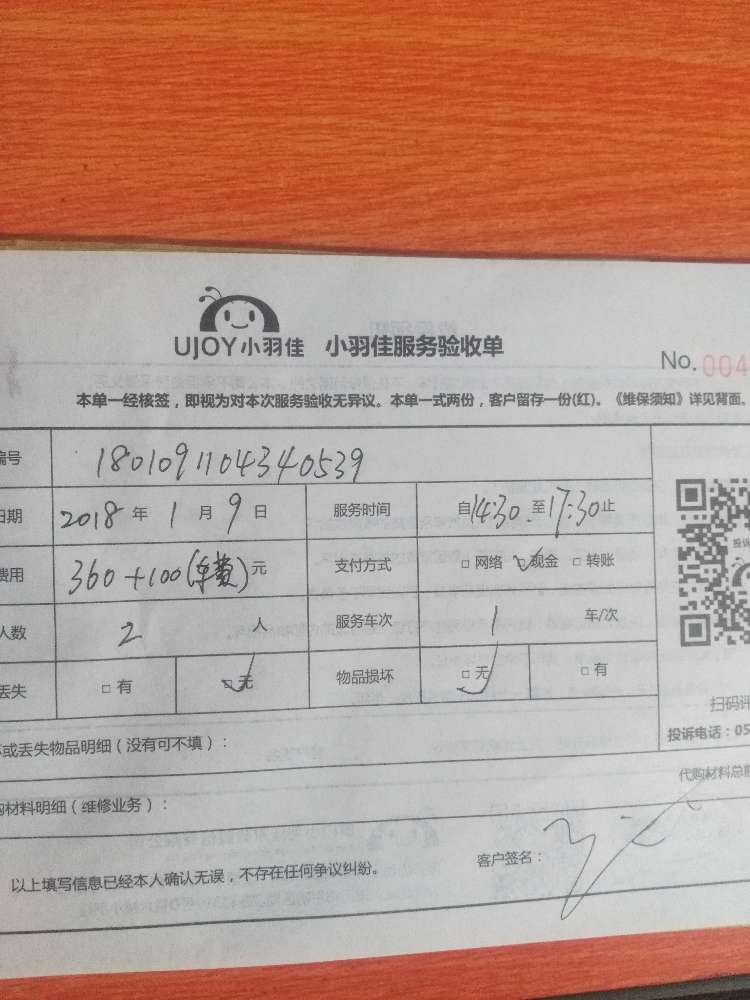 UJOY小羽佳 小羽佳服务验收单
No. 004
本单一经核签，即视为对本次服务验收无异议。本单一式两份，客户留存一份(红)。《维保须知》详见背面。
编号 1801091104340539
日期 2018 年 1 月 9 日 服务时间 自14:30 至17:30止
费用 360+100(车费)元 支付方式 □ 网络 ✓现金 □ 转账
人数 2 人 服务车次 1 车/次
丢失 □ 有 □ 无 物品损坏 □ 无 □ 有
投诉
扫码评
坏或丢失物品明细（没有可不填）：
投诉电话：05
代购材料总额
购材料明细（维修业务）：
以上填写信息已经本人确认无误，不存在任何争议纠纷。
客户签名：